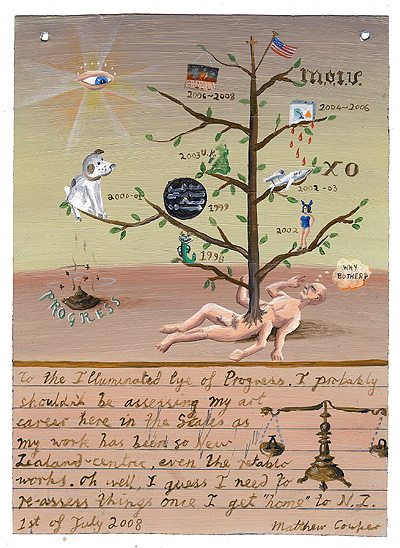 2006-2008
2004-2006
2003 U.K
XO
2002-03
1999
2002
1998
WHY
BOTHER?
PROGRESS
To the Illuminated Eye of Progress. I probably
shouldn't be assessing my art
career here in the States as
my work has been so New
Zealand-centric, even the retablo
works. oh well, I guess I need to
re-assess things once I get "home" to N.Z.
1st of July 2008
Matthew Couper